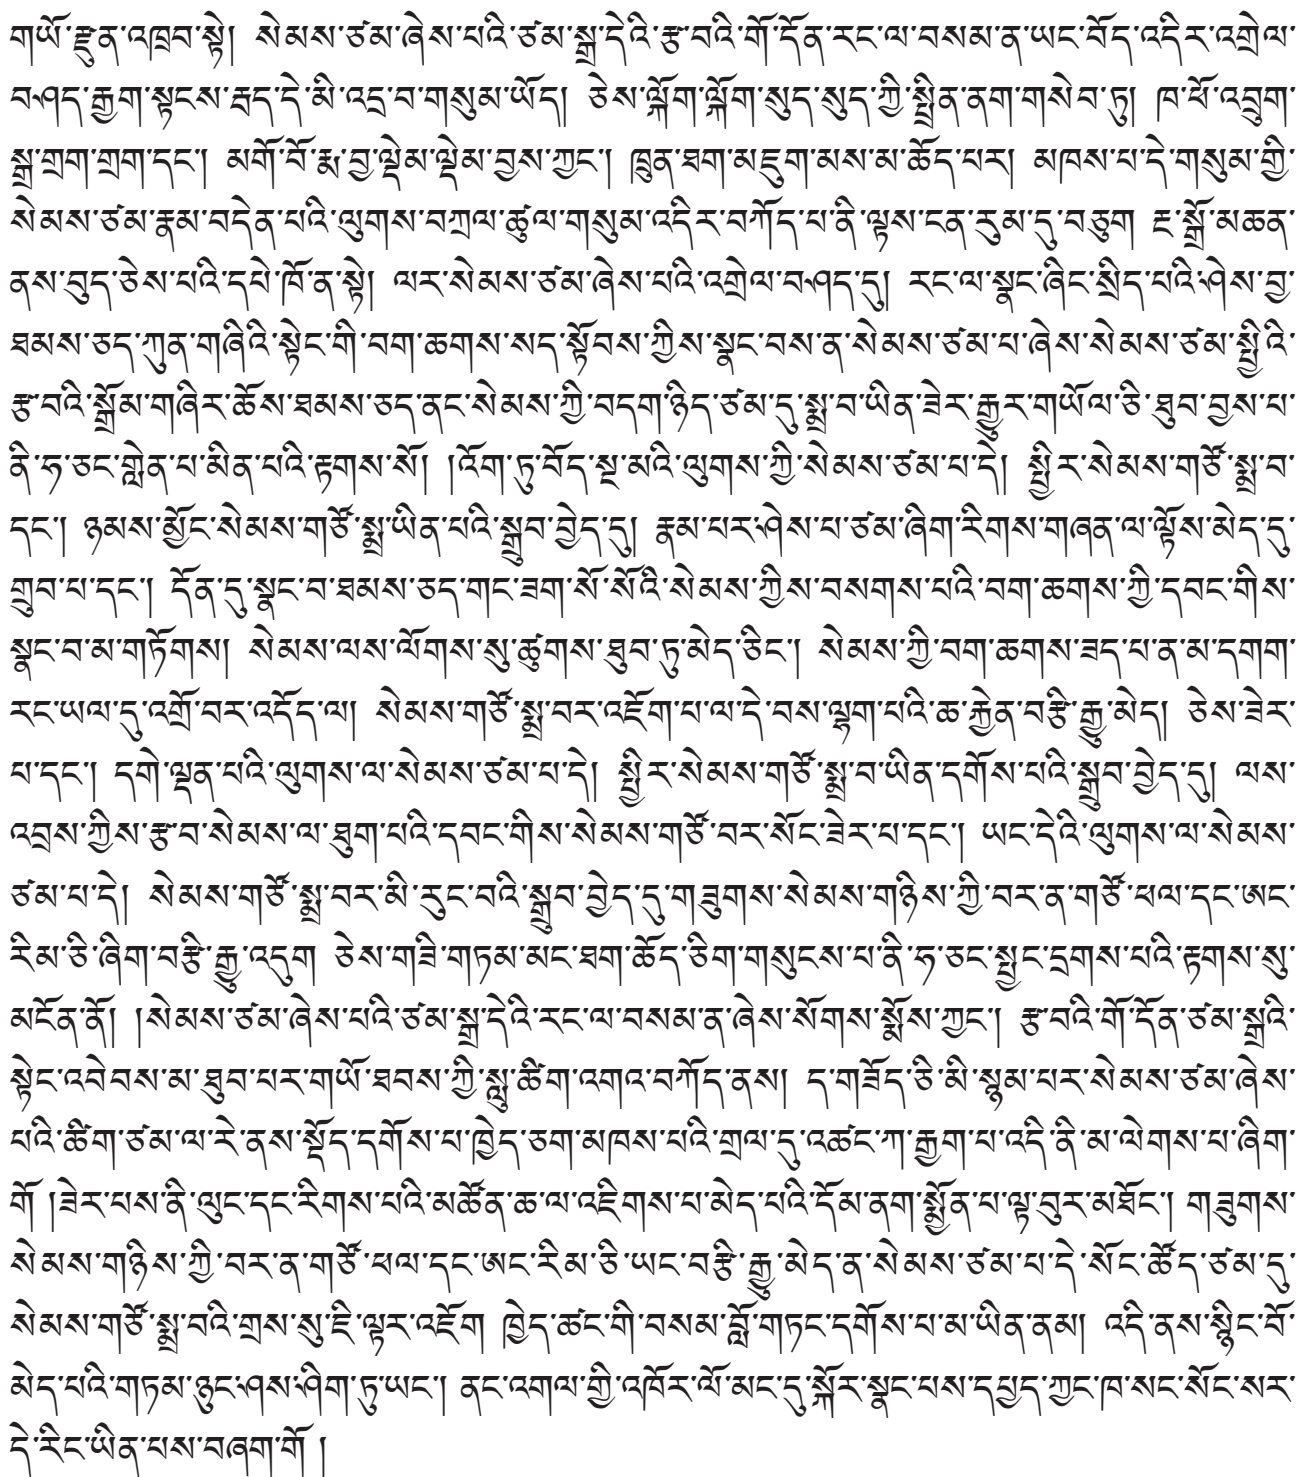 གཡོ་རྫུན་འཁྲབ་སྟེ། སེམས་ཙམ་ཞེས་པའི་ཙམ་སྒྲ་དེའི་རྩ་བའི་གོ་དོན་རང་ལ་བསམ་ན་ཡང་བོད་འདིར་འགྲེལ་
བཤད་རྒྱག་སྟངས་རྦད་དེ་མི་འདྲ་བ་གསུམ་ཡོད། ཅེས་ལྐོག་ལྐོག་སུད་སུད་ཀྱི་སྤྲིན་ནག་གསེབ་ཏུ། ཁ་ཕོ་འབྲུག་
སྒྲ་གྲག་གྲག་དང་། མགོ་བོ་རྨ་བྱ་ལྡེམ་ལྡེམ་བྱས་ཀྱང་། ཁྲུན་ཐག་མདུག་མས་མ་ཆོད་པར། མཁས་པ་དེ་གསུམ་གྱི་
སེམས་ཙམ་རྣམ་བདེན་པའི་ལུགས་བཀྲལ་ཚུལ་གསུམ་འདིར་བཀོད་པ་ནི་ལྟས་ངན་རུམ་དུ་བཅུག རྔ་སྒྲོ་མཆན་
ནས་བུད་ཅེས་པའི་དཔེ་ཁོ་ན་སྟེ། ལར་སེམས་ཙམ་ཞེས་པའི་འགྲེལ་བཤད་དུ། རང་ལ་སྣང་ཞིང་སྲིད་པའི་ཤེས་བྱ་
ཐམས་ཅད་ཀུན་གཞིའི་སྟེང་གི་བག་ཆགས་སད་སྟོབས་ཀྱིས་སྣང་བས་ན་སེམས་ཙམ་པ་ཞེས་སེམས་ཙམ་སྤྱིའི་
རྩ་བའི་སྒྲོམ་གཞིར་ཆོས་ཐམས་ཅད་ནང་སེམས་ཀྱི་བདག་ཉིད་ཙམ་དུ་སྨྲ་བ་ཡིན་ཟེར་རྒྱུར་གཡོལ་ཅི་ཐུབ་བྱས་པ་
ནི་ཧ་ཅང་གླེན་པ་མིན་པའི་རྟགས་སོ། །འོག་ཏུ་བོད་སྔ་མའི་ལུགས་ཀྱི་སེམས་ཙམ་པ་དེ། སྤྱིར་སེམས་གཙོ་སྨྲ་བ་
དང་། ཉམས་མྱོང་སེམས་གཙོ་སྨྲ་ཡིན་པའི་སྒྲུབ་བྱེད་དུ། རྣམ་པར་ཤེས་པ་ཙམ་ཞིག་རིགས་གཞན་ལ་ལྟོས་མེད་དུ་
གྲུབ་པ་དང་། དོན་དུ་སྣང་བ་ཐམས་ཅད་གང་ཟག་སོ་སོའི་སེམས་ཀྱིས་བསགས་པའི་བག་ཆགས་ཀྱི་དབང་གིས་
སྣང་བ་མ་གཏོགས། སེམས་ལས་ལོགས་སུ་ཚུགས་ཐུབ་ཏུ་མེད་ཅིང་། སེམས་ཀྱི་བག་ཆགས་ཟད་པ་ན་མ་དགག་
རང་ཡལ་དུ་འགྲོ་བར་འདོད་ལ། སེམས་གཙོ་སྨྲ་བར་འཇོག་པ་ལ་དེ་བས་ལྷག་པའི་ཆ་རྐྱེན་བརྩི་རྒྱུ་མེད། ཅེས་ཟེར་
པ་དང་། དགེ་ལྡན་པའི་ལུགས་ལ་སེམས་ཙམ་པ་དེ། སྤྱིར་སེམས་གཙོ་སྨྲ་བ་ཡིན་དགོས་པའི་སྒྲུབ་བྱེད་དུ། ལས་
འབྲས་ཀྱིས་རྩ་བ་སེམས་ལ་ཐུག་པའི་དབང་གིས་སེམས་གཙོ་བར་སོང་ཟེར་པ་དང་། ཡང་དེའི་ལུགས་ལ་སེམས་
ཙམ་པ་དེ། སེམས་གཙོ་སྨྲ་བར་མི་རུང་བའི་སྒྲུབ་བྱེད་དུ་གཟུགས་སེམས་གཉིས་ཀྱི་བར་ན་གཙོ་ཕལ་དང་ཨང་
རིམ་ཅི་ཞིག་བརྩི་རྒྱུ་འདུག ཅེས་གཟི་གཏམ་མང་ཐག་ཆོད་ཅིག་གསུངས་པ་ནི་ཧ་ཅང་སྤྱང་དྲགས་པའི་རྟགས་སུ་
མངོན་ནོ། །སེམས་ཙམ་ཞེས་པའི་ཙམ་སྒྲ་དེའི་རང་ལ་བསམ་ན་ཞེས་སོགས་སྨོས་ཀྱང་། རྩ་བའི་གོ་དོན་ཙམ་སྒྲའི་
སྟེང་འབེབས་མ་ཐུབ་པར་གཡོ་ཐབས་ཀྱི་སླུ་ཚིག་འགའ་བཀོད་ནས། ད་གཟོད་ཅི་མི་སྙམ་པར་སེམས་ཙམ་ཞེས་
པའི་ཚིག་ཙམ་ལ་རེ་ནས་སྡོད་དགོས་པ་ཁྱེད་ཅག་མཁས་པའི་གྲལ་དུ་འཚང་ཀ་རྒྱག་པ་འདི་ནི་མ་ལེགས་པ་ཞིག་
གོ །ཟེར་པས་ནི་ལུང་དང་རིགས་པའི་མཚོན་ཆ་ལ་འཇིགས་པ་མེད་པའི་དོམ་ནག་སྨྱོན་པ་ལྟ་བུར་མཐོང་། གཟུགས་
སེམས་གཉིས་ཀྱི་བར་ན་གཙོ་ཕལ་དང་ཨང་རིམ་ཅི་ཡང་བརྩི་རྒྱུ་མེད་ན་སེམས་ཙམ་པ་དེ་སོང་ཚོད་ཙམ་དུ་
སེམས་གཙོ་སྨྲ་བའི་གྲས་སུ་ཇི་ལྟར་འཇོག ཁྱེད་ཚང་གི་བསམ་བློ་གཏང་དགོས་པ་མ་ཡིན་ནམ། འདི་ནས་སྙིང་བོ་
མེད་པའི་གཏམ་ཉུང་ཤས་ཤིག་ཏུ་ཡང་། ནང་འགལ་གྱི་འཁོར་ལོ་མང་དུ་སྐོར་སྣང་པས་དཔྱད་ཀྱང་ཁ་སང་སོང་སར་
དེ་རིང་ཡིན་པས་བཞག་གོ །